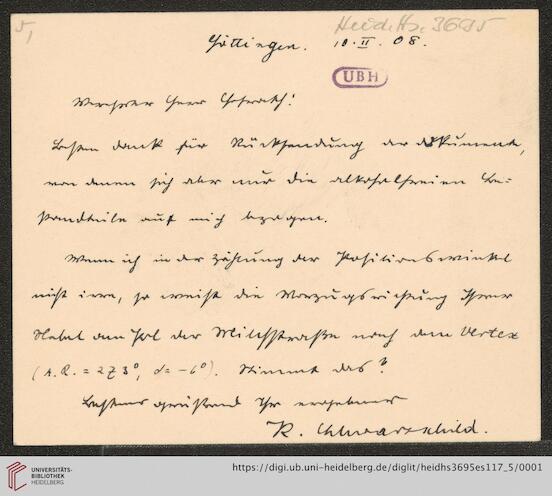 5,
Heid. Hs. 3695
Göttingen. 10. II. 08.
UBH
Verehrter Herr Hofrath!
Besten Dank für Rücksendung der Dokumente,
von denen sich aber nur die alkoholfreien Be-
standteile auf mich bezogen.
Wenn ich in der Zählung der Positionswinkel
nicht irre, so weist die Vorzugsrichtung Ihrer
Nebel am Pol der Milchstraße nach dem Vertex
(A.R. = 273°, d = -6°). Stimmt das?
Bestens grüßend Ihr ergebener
K. Schwarzschild.
UNIVERSITÄTS-
BIBLIOTHEK
HEIDELBERG
https://digi.ub.uni-heidelberg.de/diglit/heidhs3695es117_5/0001